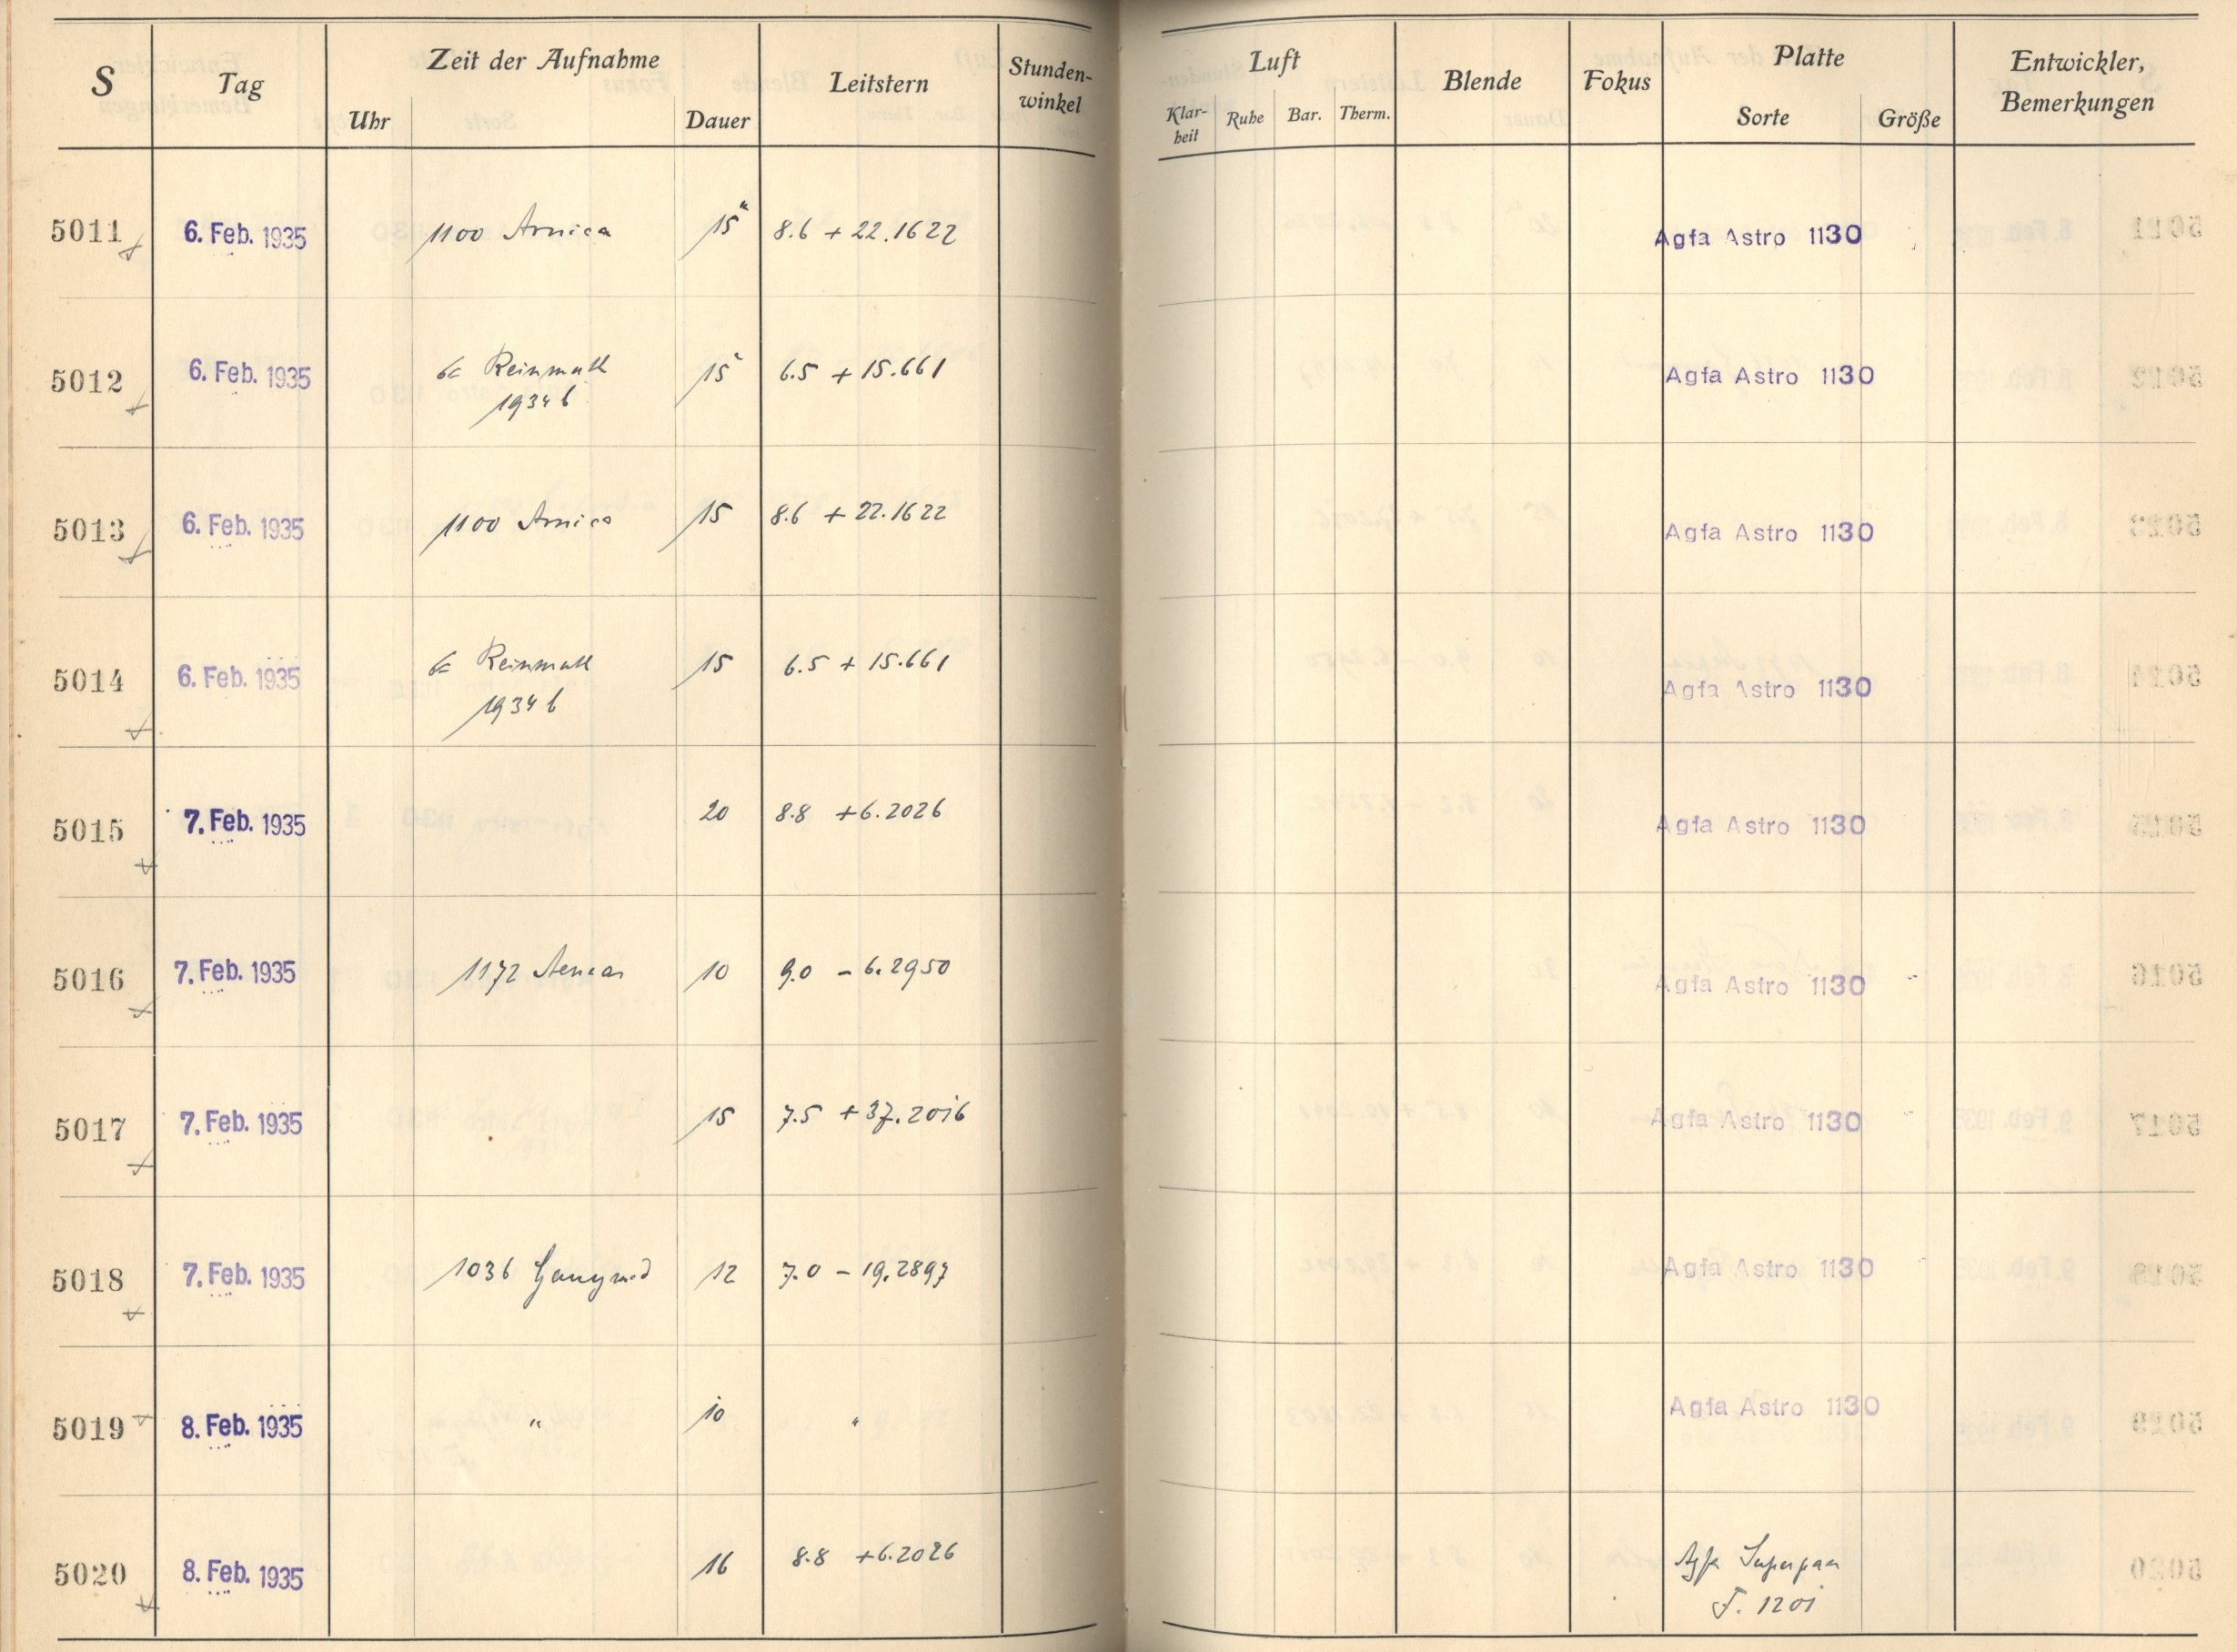 S Tag Zeit der Aufnahme Leitstern Stunden-winkel Luft Blende Fokus Platte Entwickler, Bemerkungen
Uhr Dauer Klar-heit Ruhe Bar. Therm. Sorte Größe
5011 6. Feb. 1935 1100 Arnica 15 8.6 + 22.1622 Agfa Astro 1130
5012 6. Feb. 1935 Reinmuth 15 6.5 + 15.661 Agfa Astro 1130
1934 b
5013 6. Feb. 1935 1100 Arnica 15 8.6 + 22.1622 Agfa Astro 1130
5014 6. Feb. 1935 Reinmuth 15 6.5 + 15.661 Agfa Astro 1130
1934 b
5015 7. Feb. 1935 20 8.8 +6.2026 Agfa Astro 1130
5016 7. Feb. 1935 1172 Aeneas 10 9.0 - 6.2950 Agfa Astro 1130
5017 7. Feb. 1935 15 7.5 +37.2016 Agfa Astro 1130
5018 7. Feb. 1935 1036 Ganymed 12 7.0 - 19.2897 Agfa Astro 1130
5019 8. Feb. 1935 " 10 " Agfa Astro 1130
5020 8. Feb. 1935 16 8.8 +6.2026 Agfa Superpan
F. 1201